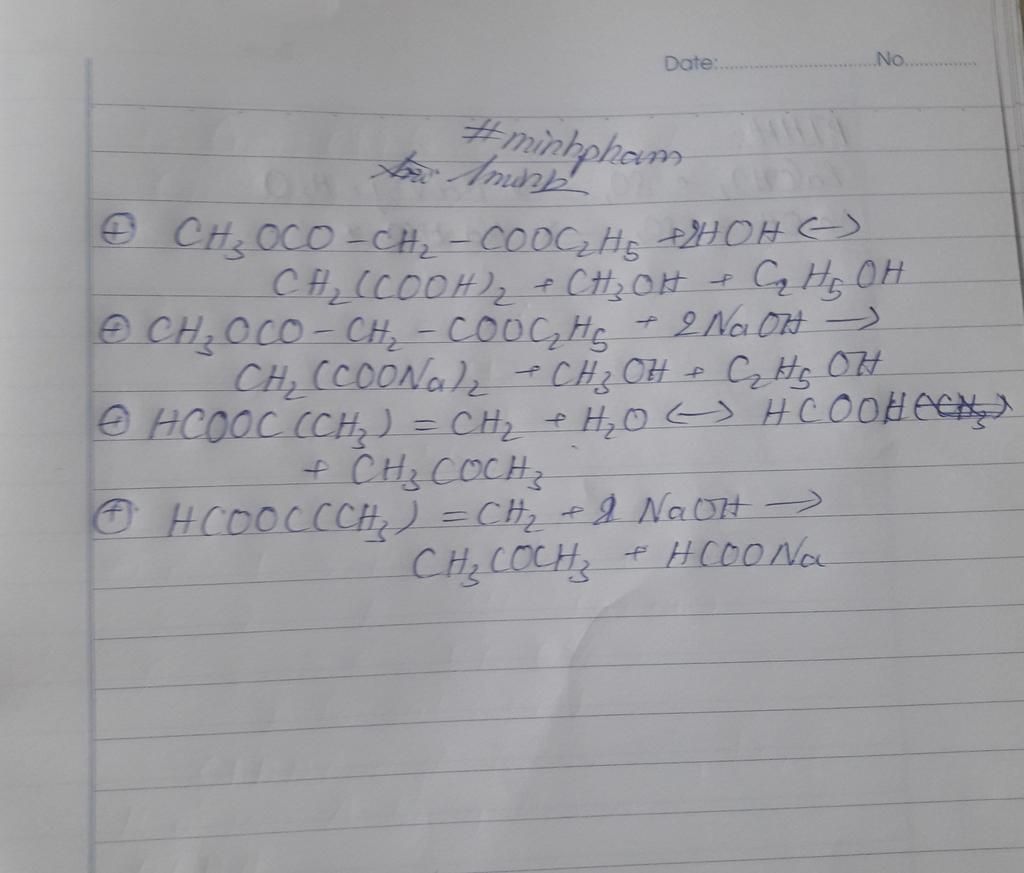 Date:..............................No..............
#minhpham
⊕ CH₃OCO - CH₂ - COOC₂H₅ + 2HOH ↔
CH₂(COOH)₂ + CH₃OH + C₂H₅OH
⊕ CH₃OCO - CH₂ - COOC₂H₅ + 2NaOH →
CH₂(COONa)₂ + CH₃OH + C₂H₅OH
⊕ HCOOC(CH₃) = CH₂ + H₂O ↔ HCOOH
+ CH₃COCH₃
⊕ HCOOC(CH₃) = CH₂ + NaOH →
CH₃COCH₃ + HCOONa